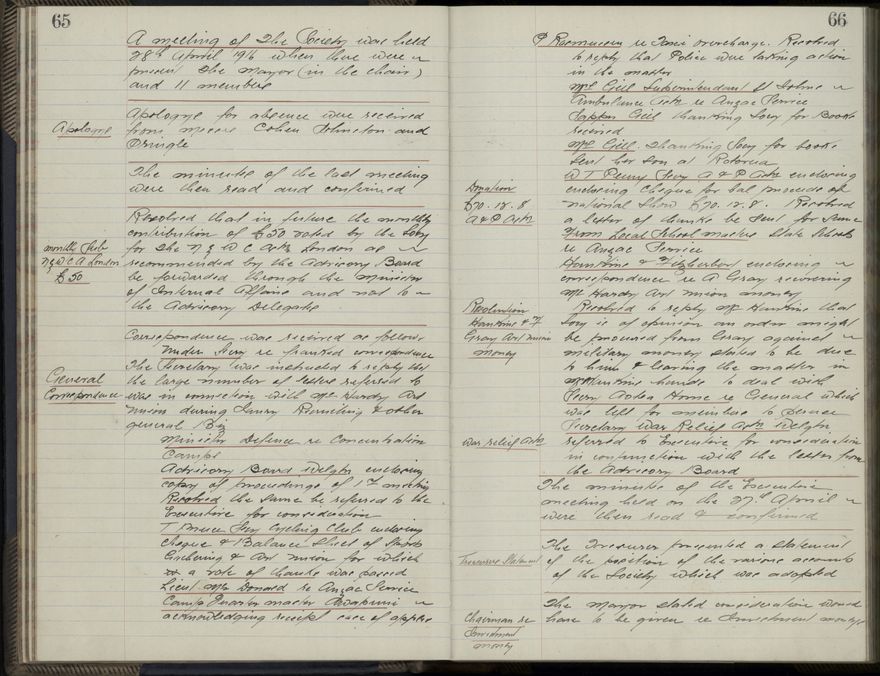 65
A meeting of the Society was held
28th April 1916 when there were
present The Mayor (in the chair)
and 11 members
Apologie
Apologys for absence were received
from messrs Cohen Johnston and
Pringle
The minutes of the last meeting
were then read and confirmed
Resolved that in future the monthly
contribution of £50 voted by the Socy
monthly Sub
N Z W C A London
£50
for the N Z W C Assn London as
recommended by the Advisory Board
be forwarded through the Minister
of Internal Affairs and not to
the Advisory Delegate
Correspondence was received as follows
Under Secy re franked correspondence
The Secretary was instructed to reply that
General
Correspondence
the large number of letters referred to
was in connection with Mr Hardy Art
Union during Henry & other
general Biz
Minister Defence re Concentration
Camps
Advisory Board Welgtn enclosing
copy of proceedings of 1st meeting
Resolved the same be referred to the
Executive for consideration
T Bruce Secy Cycling Club enclosing
cheque & Balance Sheet of Sports
Gathering & Art Union for which
a vote of thanks was passed
Lieut McDonald re Anzac Service
Camp Quarter master Awapuni
acknowledging receipt case of apples
66
P Rasmussen re Taxi overcharge. Resolved
to reply that Police were taking action
in the matter
Mrs Gill Superintendent St Johns
Ambulance Assn re Anzac Service
Sapper Gill thanking Socy for Books
received
Mrs Gill thanking Socy for books
sent her son at Rotorua
Donation
£70. 12. 8
A & P Assn
W T Penny Secy A & P Assn enclosing
enclosing cheque for bal proceeds of
national Show £70. 12. 8. Resolved
a letter of thanks be sent for same
From Local School masters State Schools
re Anzac Service
Hankins & Fitzherbert enclosing
correspondence re A Gray recovering
Mt Hardy Art union money
Resolution
Hankins & F
Gray Art Union
money
Resolved to reply Mr Hankins that
Socy is of opinion an order might
be procured from Gray against
military money stated to be due
to him & leaving the matter in
Mr Hankins hands to deal with
Secy Aotea Home re General which
was left for members to peruse
war relief Assn
Secretary War Relief Assn Welgtn
referred to Executive for consideration
in conjunction with the letter from
the Advisory Board
The minutes of the Executive
meeting held on the 27th April
were then read & confirmed
Treasurers Statement
The Treasurer presented a statement
of the position of the various accounts
of the Society which was adopted
Chairman re
Investment
money
The Mayor stated consideration would
have to be given re Investment moneys